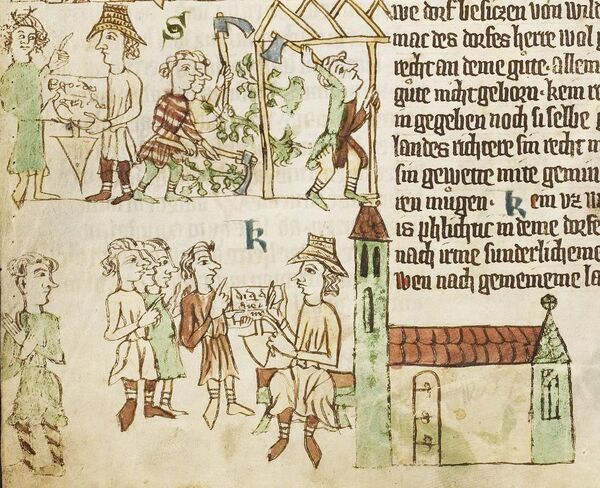 we dorf besiczen von wild
mac des dorfes herre wol
recht an deme gute. allein
gute nicht geborn. kein re
in gegeben noch si selbe
landes richtere sin recht
sin gewette mite
ren mugen. kein vz
is phlichtic in deme dorfe
nach irme sunderlicheme
wen nach gemeineme la
S
Ego de
gra
k